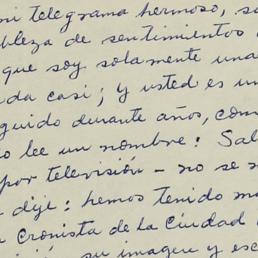 mi telegrama hermoso, so
bleza de sentimientos
que soy solamente una
da casi; y usted es un
guido durante años, com
o lee un nombre! Sal
por televisión - no se s
dije: hemos tenido m
Cronista de la Ciudad
su imagen y esc